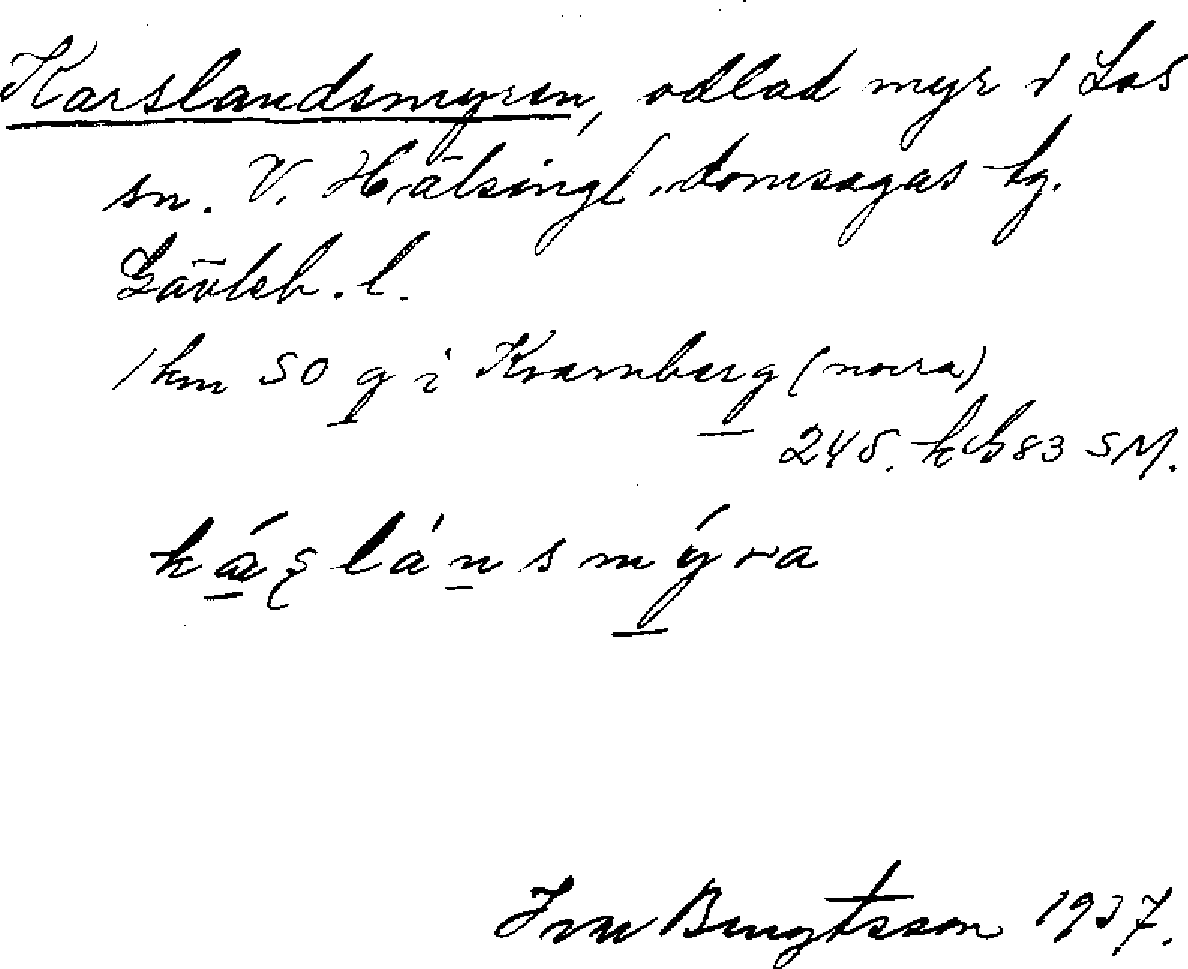 Karslandsmyren, odlad myr i Los
sn. V. Hälsingl. domsagas tg.
Gävleb. l.
1 km SO g i Kvarnberg (norra)
245. kcb 83 SM.
kæşlánsmýra
Bengtsson 1937.